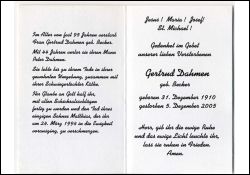 Im Alter von fast 95 Jahren verstarb
Frau Gertrud Dahmen geb. Becker.
Mit 44 Jahren verlor sie ihren Mann
Peter Dahmen.
Sie lebte bis zu ihrem Tode in ihrer
gewohnten Umgebung, zusammen mit
ihrer Schwiegertochter Käthe.
Ihr Glaube an Gott half ihr,
mit allen Schicksalsschlägen
fertig zu werden und den Tod ihres
einzigen Sohnes Matthias, der ihr
am 24. März 1994 in die Ewigkeit
vorausging, zu verschmerzen.
Jesus! Maria! Josef!
St. Michael!
Gedenket im Gebet
unserer lieben Verstorbenen
Gertrud Dahmen
geb. Becker
geboren 31. Dezember 1910
gestorben 5. Dezember 2005
Herr, gib ihr die ewige Ruhe
und das ewige Licht leuchte ihr,
lass sie ruhen in Frieden.
Amen.